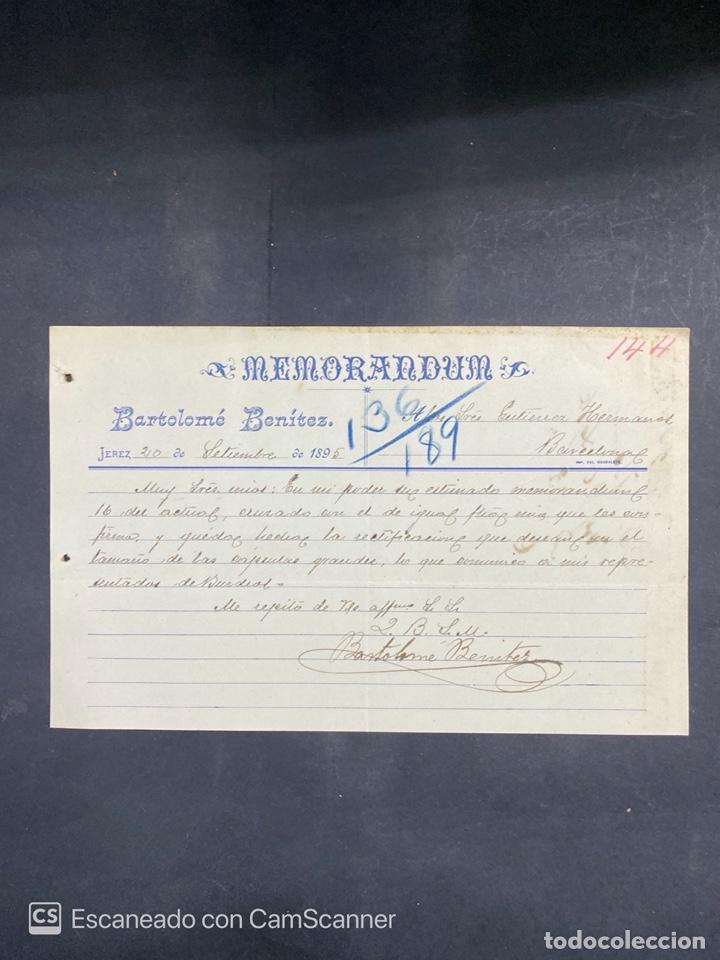 MEMORANDUM
144
136
189
Bartolomé Benítez.
A los Sres Gutierrez Hermanos
Barcelona
JEREZ 20 de Setiembre de 1895
Muy Sres mios: En mi poder su estimado memorandum
16 del actual, cruzado con el de igual fha mia que les con-
firmo, y queda hecha la rectificacion que desean en el
tamaño de las cápsulas grandes, lo que comunico á mis repre-
sentados de Burdeos.
Me repito de Vds affmo S. S.
Q. B. S. M.
Bartolomé Benitez
CS Escaneado con CamScanner
todocoleccion